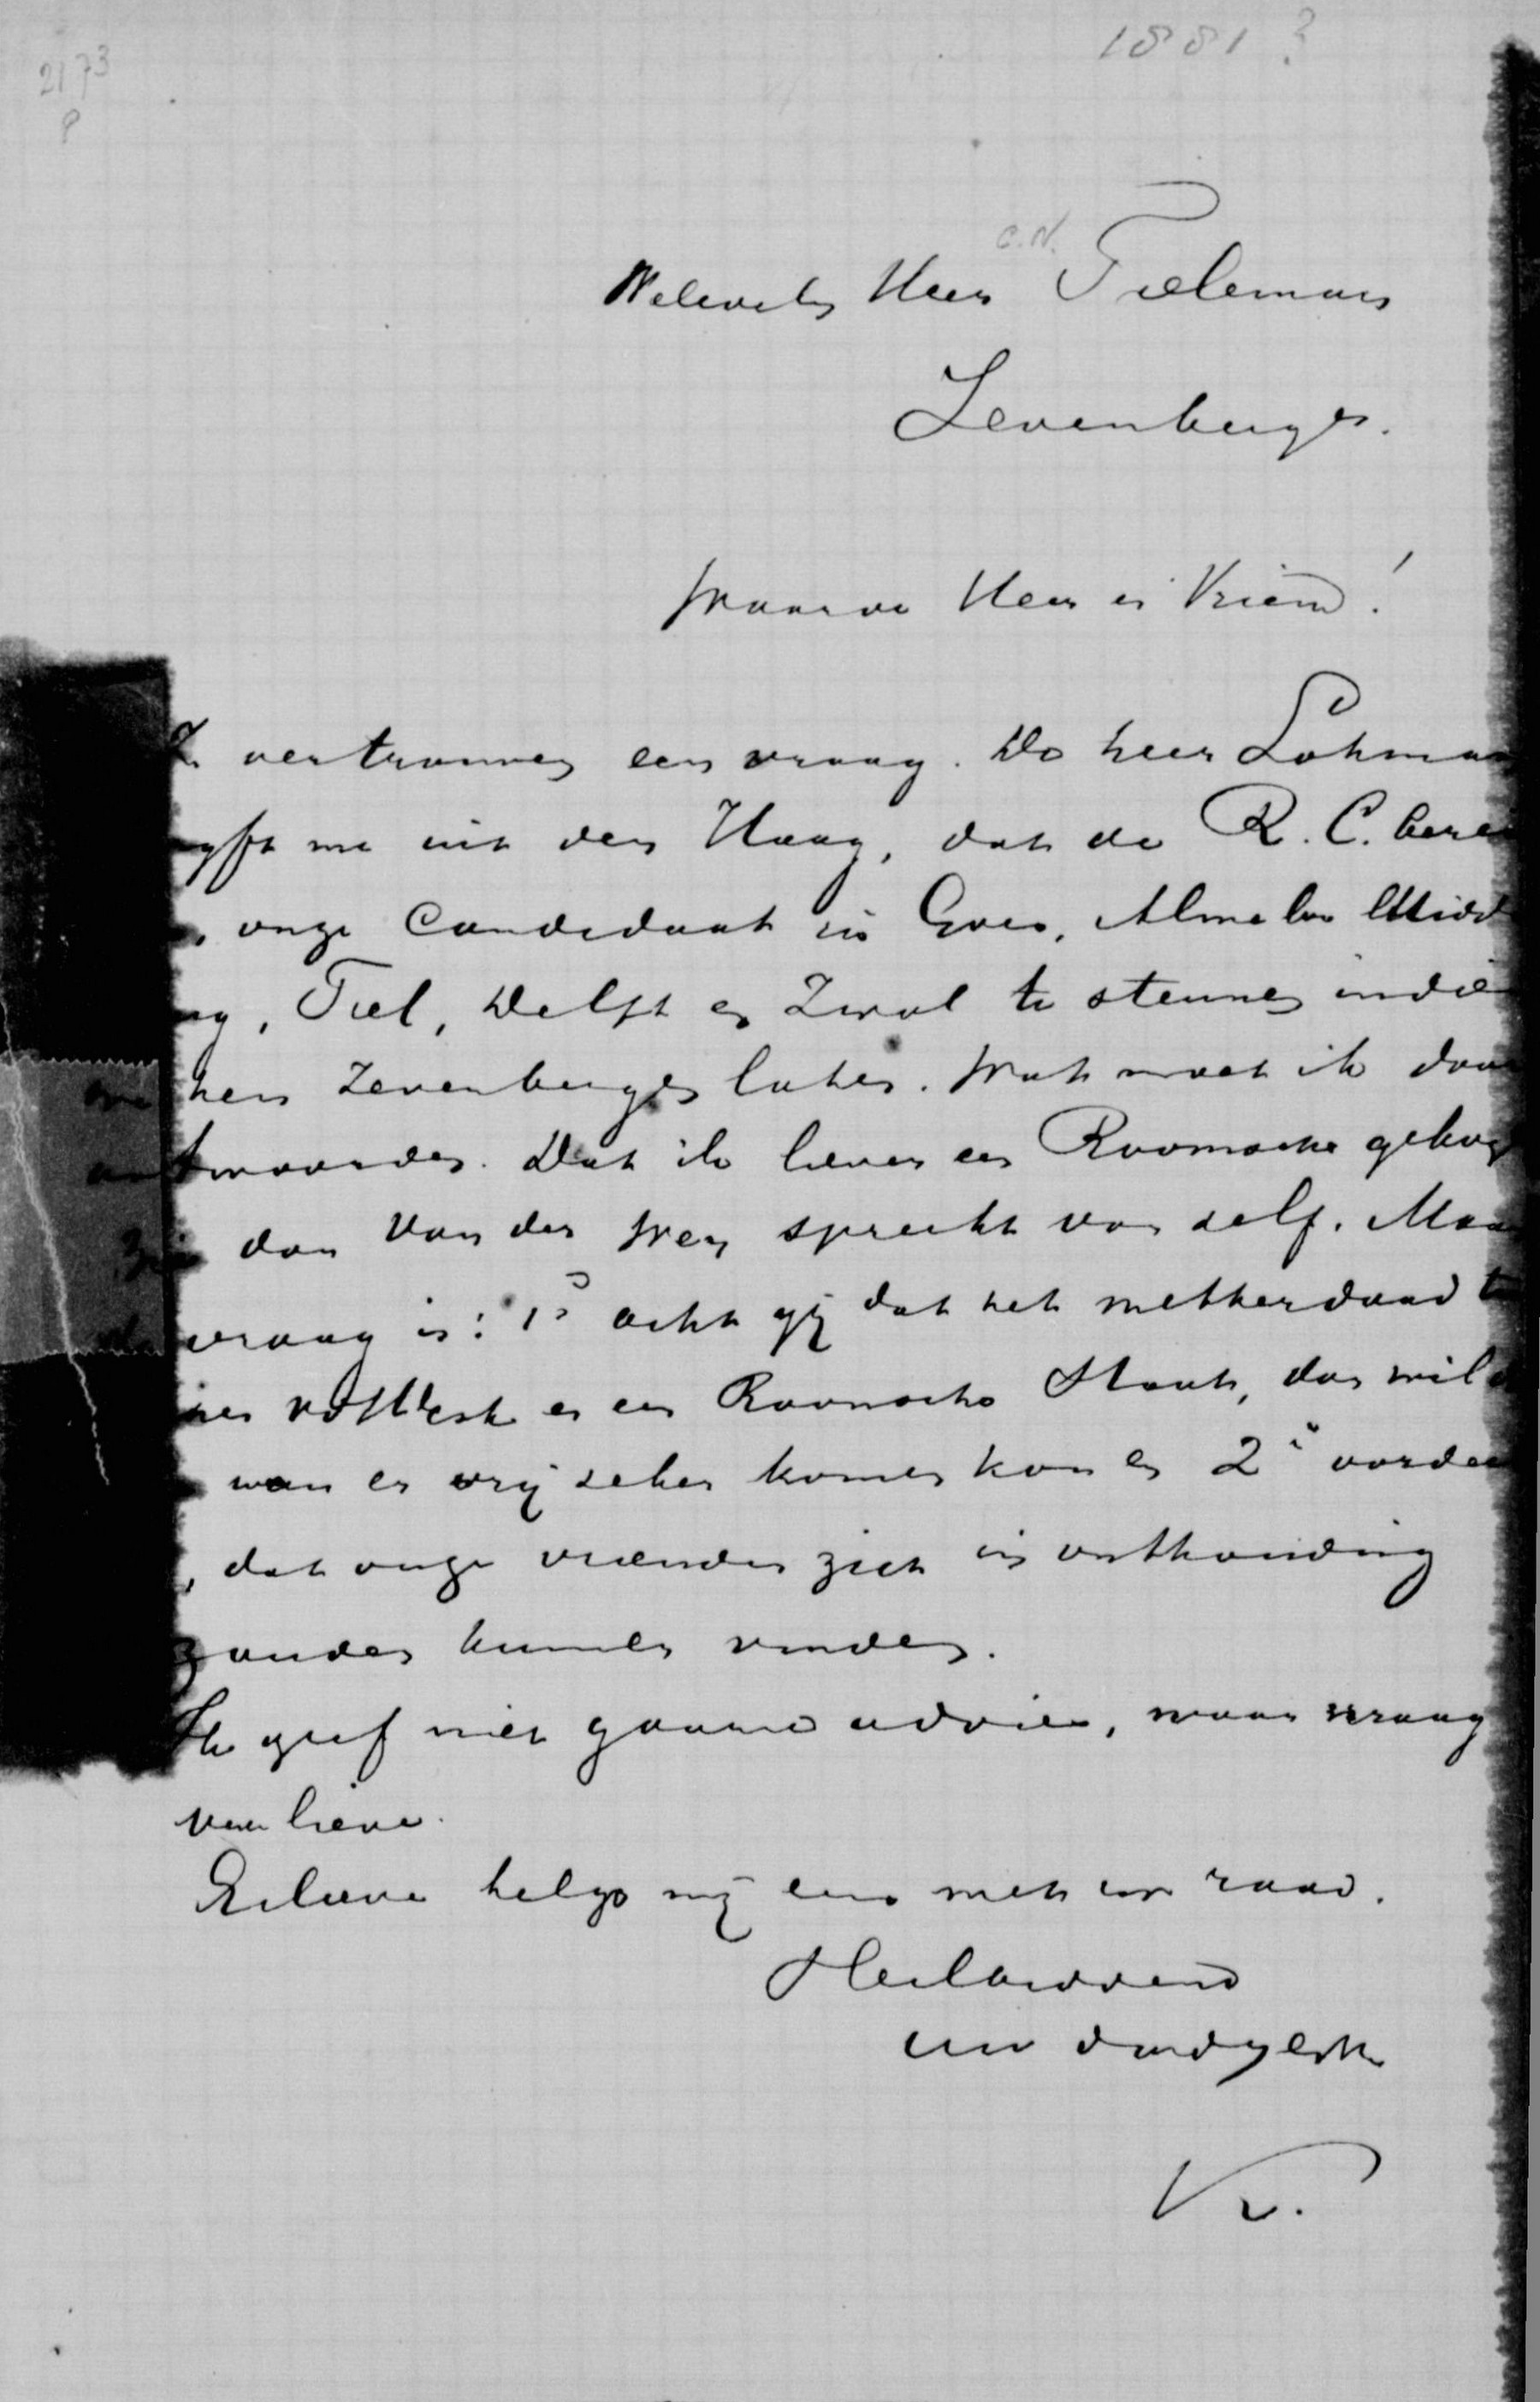 1881?
2173
P
C.N.
Weledele Heer Tielemans
Zevenbergen.
Waarde Heer en Vriend!
In vertrouwen een vraag. De heer Lohman
yft me uit den Haag, dat de R.C. bere
onze Candidaat in Goes, Almelo Midd
g, Tiel, Delft en Zwol te steunen indien
hen Zevenbergen laten. Wat moet ik daar
antwoorden. Dat ik liever een Roomsche gekoz
zie dan Van der Wey spreekt van self. Maar
de vraag is: 1° acht gij dat het metterdaad t
een Roomsche Staat, dan wil
men er vrij zeker komen kan en 2° oordee
, dat onze vrienden zich in onthouding
zouden kunnen vinden.
Ik geef niet gaarne advies, maar vraag
van liever.
Gelieve help mij eens met uw raad.
Heilbiddend
uw dw
Kr.